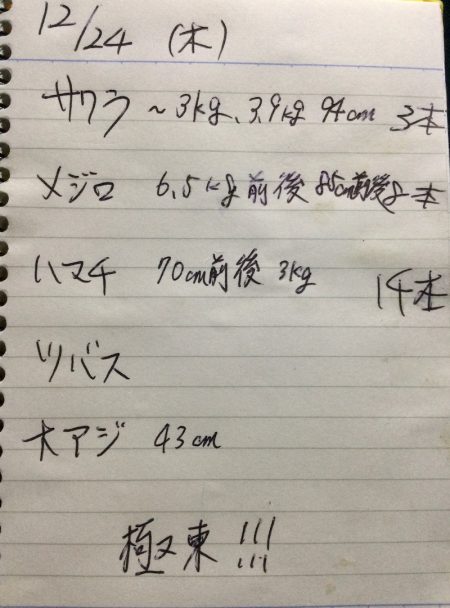 12/24 (木)
サワラ ~3kg、3.9kg 94cm 3本
メジロ 6.5kg前後 85cm前後 8本
ハマチ 70cm前後 3kg 14本
ツバス
大アジ 43cm
極東!!!!!!